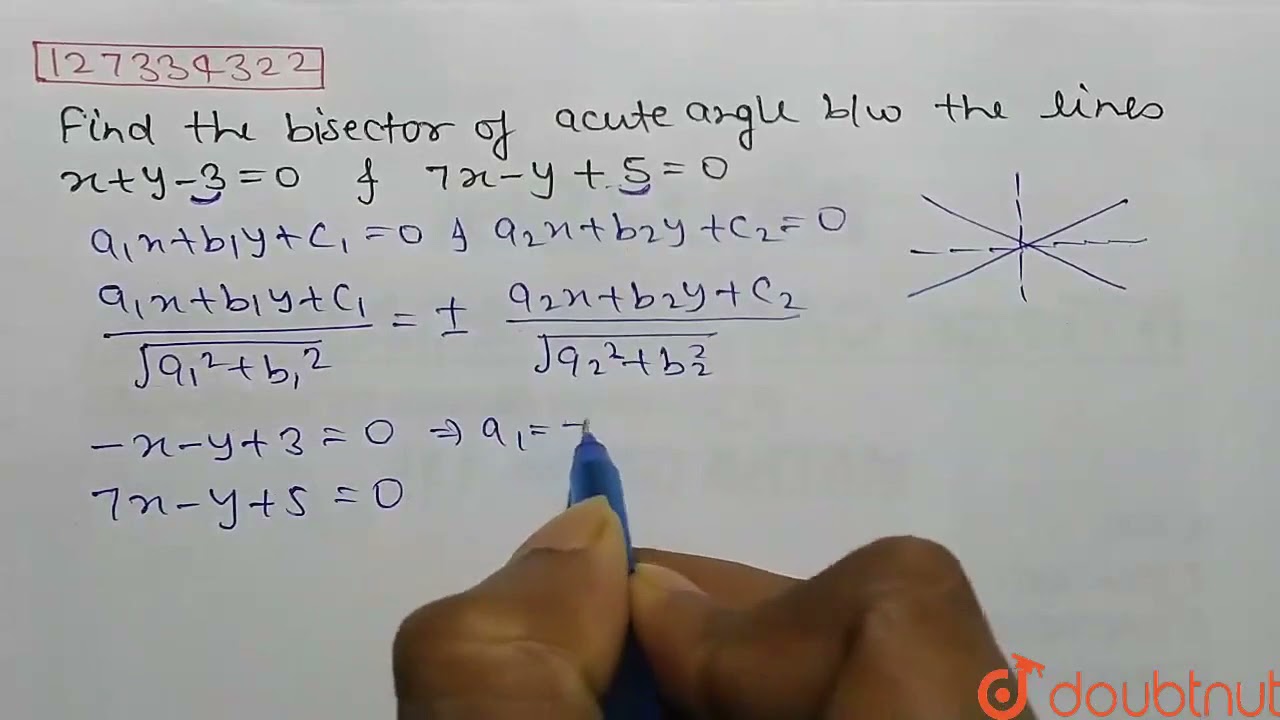 127334322
Find the bisector of acute angle b/w the lines
x+y-3=0 & 7x-y+5=0
a₁x+b₁y+c₁=0 & a₂x+b₂y+c₂=0
a₁x+b₁y+c₁ / √a₁²+b₁² = ± a₂x+b₂y+c₂ / √a₂²+b₂²
-x-y+3=0 ⇒ a₁=-
7x-y+5=0
doubtnut